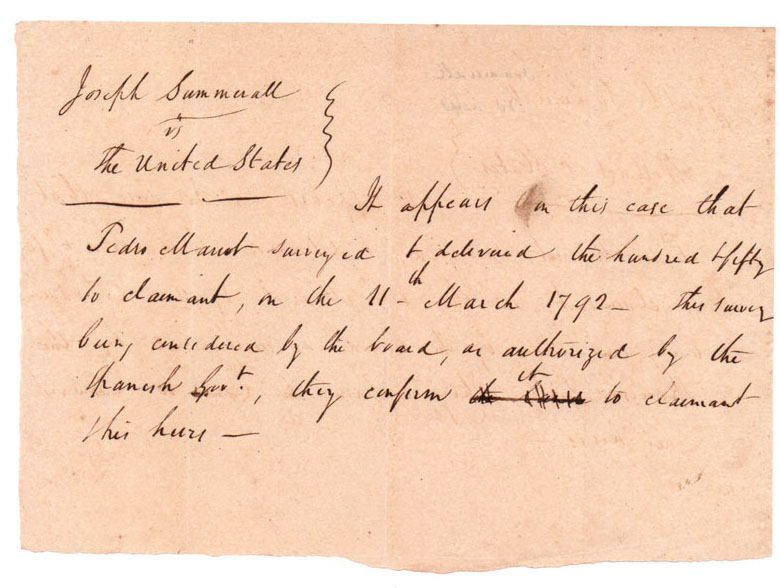 Joseph Summerall
vs
The United States
It appears in this case that
Pedro Marrot surveyed & delivered the hundred & fifty
to claimant, on the 11th March 1792 — This survey
being considered by the board, as authorized by the
Spanish Govt., they confirm it to claimant
& his heirs —